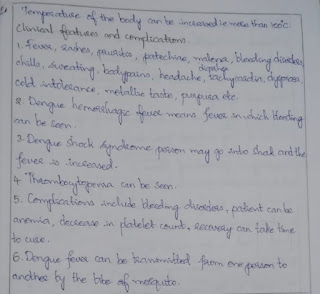 Temperature of the body can be increased ie more than 100°C.
Clinical features and complications.
1. Fever, rashes, pruritis, petechiae, malena, bleeding disorders,
chills, sweating, bodypains, headache, tachycardia, dyspnoea,
cold intolerance, metallic taste, purpura etc.
2. Dengue hemorrhagic fever means fever in which bleeding
can be seen.
3. Dengue shock syndrome person may go into shock and the
fever is increased.
4. Thrombocytopenia can be seen.
5. Complications include bleeding disorders, patient can be
anemia, decrease in platelet count. Recovery can take time
to cure.
6. Dengue fever can be transmitted from one person to
another by the bite of mosquito.